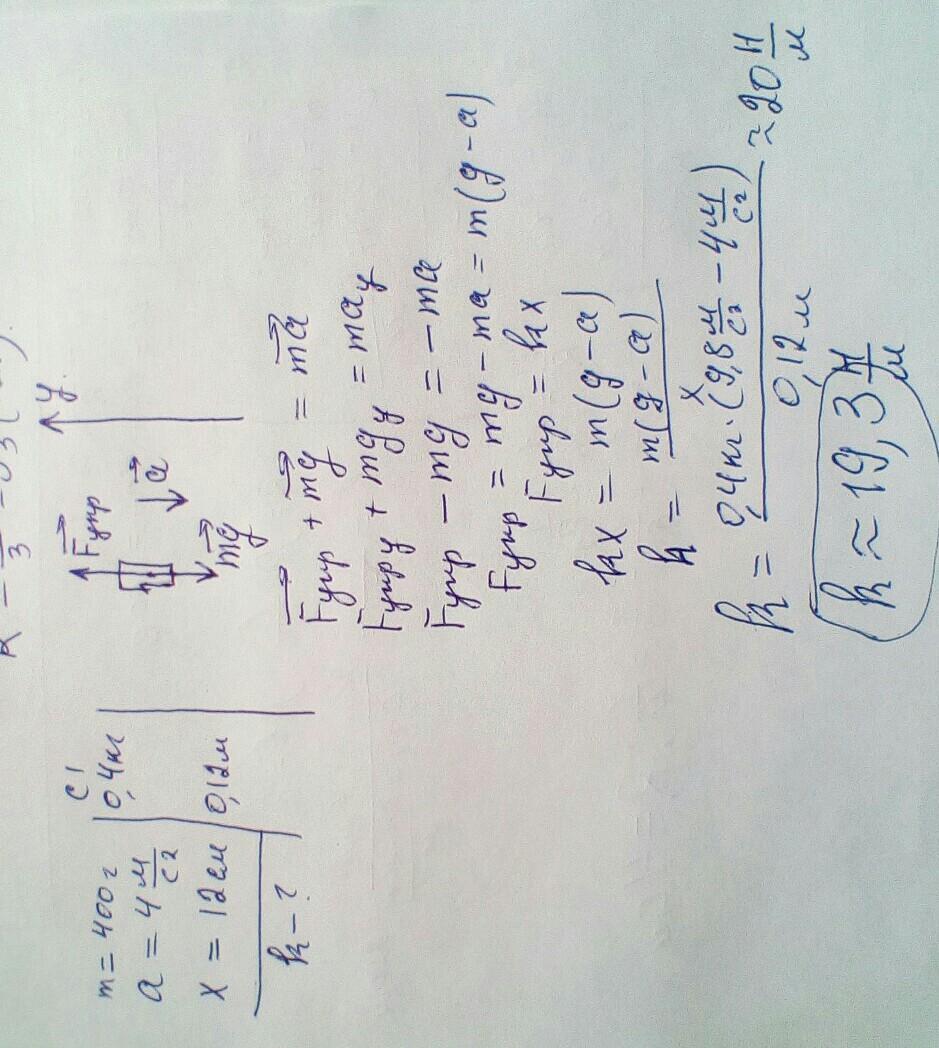 СИ
m = 400г 0,4кг
a = 4 м/с²
x = 12см 0,12м
k - ?
F⃗упр
y
a⃗
mg⃗
F⃗упр + mg⃗ = ma⃗
Fупр y + mgy = may
Fупр − mg = −ma
Fупр = mg − ma = m(g − a)
Fупр = kx
kx = m(g − a)
k = m(g − a)/x
k = 0,4кг·(9,8 м/с² − 4 м/с²)/0,12м ≈ 20 Н/м
k ≈ 19,3 Н/м